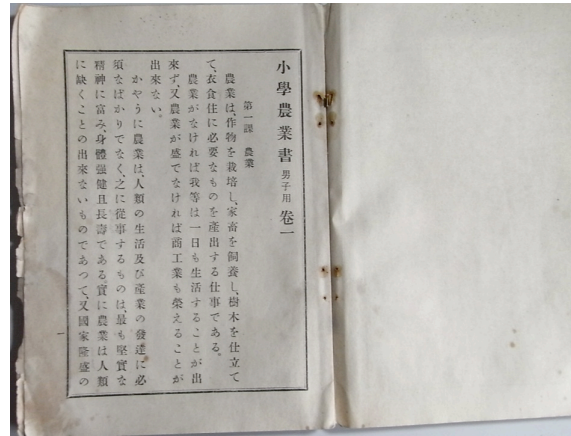 小學農業書 男子用 卷一
第一課 農業
農業は、作物を栽培し、家畜を飼養し、樹木を仕立て
て、衣食住に必要なものを產出する仕事である。
農業がなければ我等は一日も生活することが出
來ず、又農業が盛でなければ商工業も榮えることが
出來ない。
かやうに農業は、人類の生活及び產業の發達に必
須なばかりでなく、之に從事するものは、最も堅實な
精神に富み、身體强健且長壽である。實に農業は人類
に缺くことの出來ないものであつて、又國家隆盛の
一